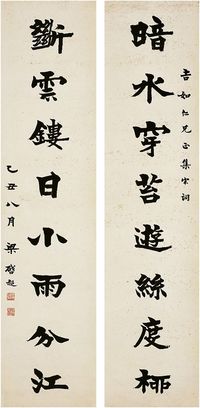 暗水穿苔遊絲度柳
吉如仁兄正集宋詞
斷雲鏤日小雨分江
乙丑八月梁啓超